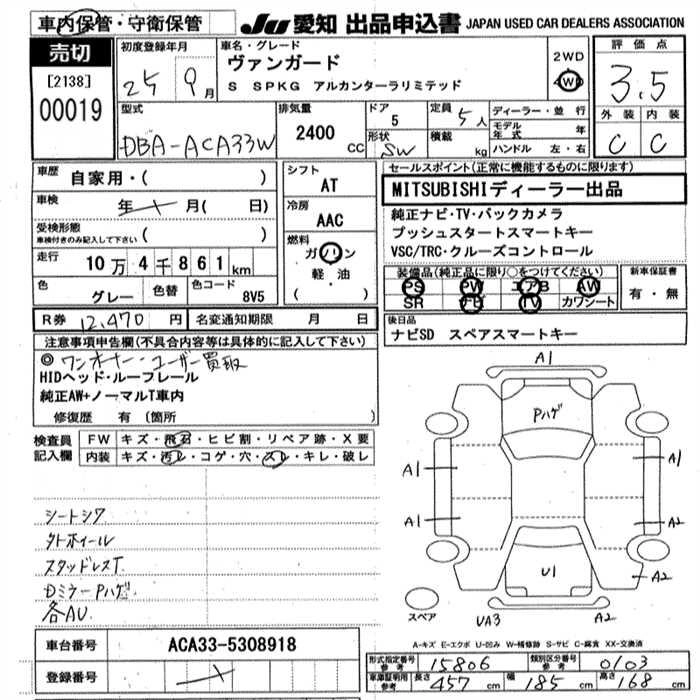 車内保管・守衛保管
JU 愛知 出品申込書 JAPAN USED CAR DEALERS ASSOCIATION
売切
[2138]
00019
初度登録年月
25 9月
車名・グレード
ヴァンガード
S SPKG アルカンターラリミテッド
2WD
4WD
評価点
3.5
外装 内装
C C
型式
DBA-ACA33W
排気量
2400 CC
ドア
5
形状
SW
定員
5人
積載
kg
ディーラー・並行
モデル年式 年
ハンドル 左・右
車歴
自家用・( )
車検
年 月( 日)
受検形態
車検付きのみ記入して下さい ( )
走行
10万4千861km
色
グレー
色替
色コード
8V5
シフト
AT
冷房
AAC
燃料
ガソリン
軽・油
( )
セールスポイント(正常に機能するものに限ります)
MITSUBISHIディーラー出品
純正ナビ・TV・バックカメラ
プッシュスタートスマートキー
VSC/TRC・クルーズコントロール
装備品(純正品に限り○をつけてください)
PS PW エアB AW
SR ナビ TV カワシート
新車保証書
有・無
R券 12,470 円
名変通知期限 月 日
後日品
ナビSD スペアスマートキー
注意事項申告欄(不具合内容等は具体的に記入して下さい)
◎ワンオーナー・ユーザー買取
HIDヘッド・ルーフレール
純正AW+ノーマルT車内
修復歴 有 (箇所 )
検査員記入欄
FW キズ・飛石・ヒビ割・リペア跡・X要
内装 キズ・汚レ・コゲ・穴・スレ・キレ・破レ
シートシワ
外ホイール
スタッドレスT
DミラーPハゲ
各AU
A1
Pハゲ
A1
A1
A1
A2
U1
A2
スペア
UA3
A2
A-キズ E-エクボ U-凹み W-補修跡 S-サビ C-腐食 XX-交換済
車台番号
ACA33-5308918
登録番号
形式指定番号参考
15806
類別区分番号参考
0103
車庫証明用参考
長さ 457cm
幅 185cm
高さ 168cm